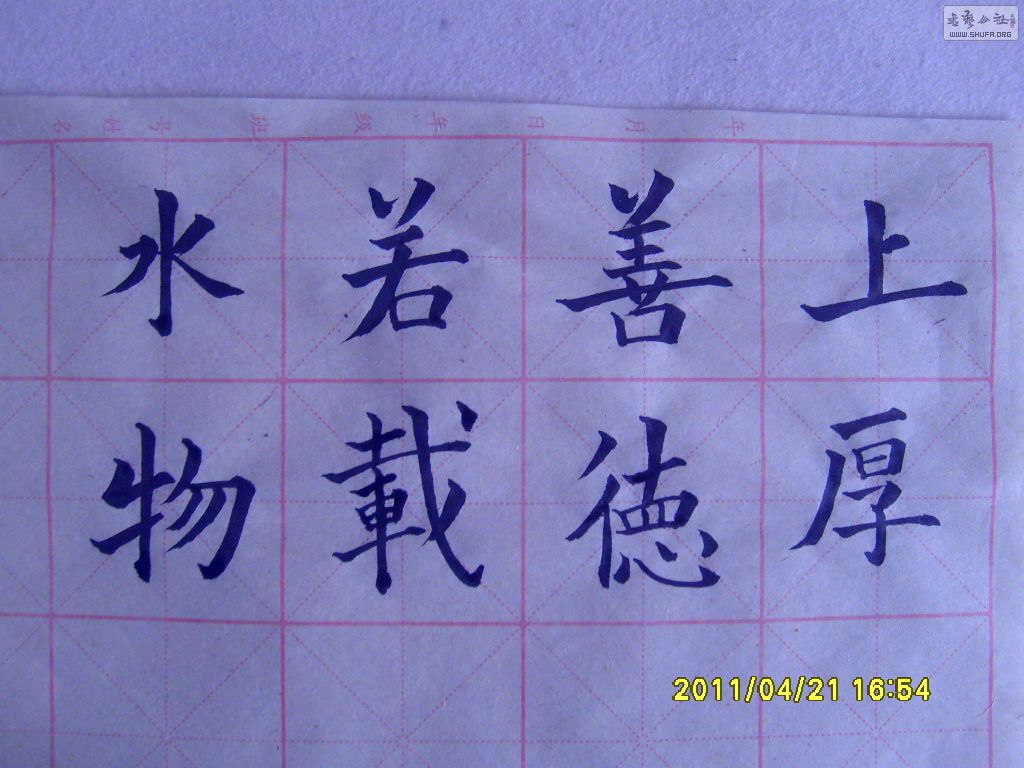 书艺公社
WWW.SHUFA.ORG
年 月 日 年 级 班 号 姓 名
上善若水
厚德載物
2011/04/21 16:54